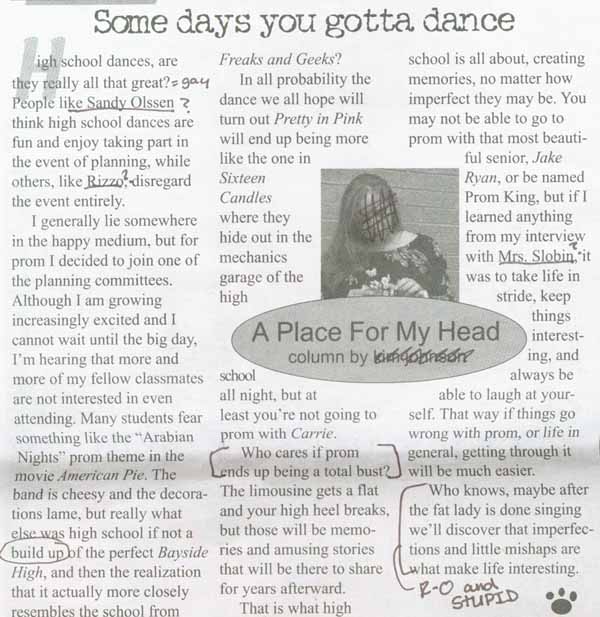 Some days you gotta dance
High school dances, are
they really all that great? = gay
People like Sandy Olssen ?
think high school dances are
fun and enjoy taking part in
the event of planning, while
others, like Rizzo? disregard
the event entirely.
I generally lie somewhere
in the happy medium, but for
prom I decided to join one of
the planning committees.
Although I am growing
increasingly excited and I
cannot wait until the big day,
I'm hearing that more and
more of my fellow classmates
are not interested in even
attending. Many students fear
something like the “Arabian
Nights” prom theme in the
movie American Pie. The
band is cheesy and the decora-
tions lame, but really what
else was high school if not a
build up of the perfect Bayside
High, and then the realization
that it actually more closely
resembles the school from
Freaks and Geeks?
In all probability the
dance we all hope will
turn out Pretty in Pink
will end up being more
like the one in
Sixteen
Candles
where they
hide out in the
mechanics
garage of the
high
A Place For My Head
column by
school
all night, but at
least you're not going to
prom with Carrie.
Who cares if prom
ends up being a total bust?
The limousine gets a flat
and your high heel breaks,
but those will be memo-
ries and amusing stories
that will be there to share
for years afterward.
That is what high
school is all about, creating
memories, no matter how
imperfect they may be. You
may not be able to go to
prom with that most beauti-
ful senior, Jake
Ryan, or be named
Prom King, but if I
learned anything
from my interview
with Mrs. Slobin,? it
was to take life in
stride, keep
things
interest-
ing, and
always be
able to laugh at your-
self. That way if things go
wrong with prom, or life in
general, getting through it
will be much easier.
Who knows, maybe after
the fat lady is done singing
we'll discover that imperfec-
tions and little mishaps are
what make life interesting.
R-O and
STUPID